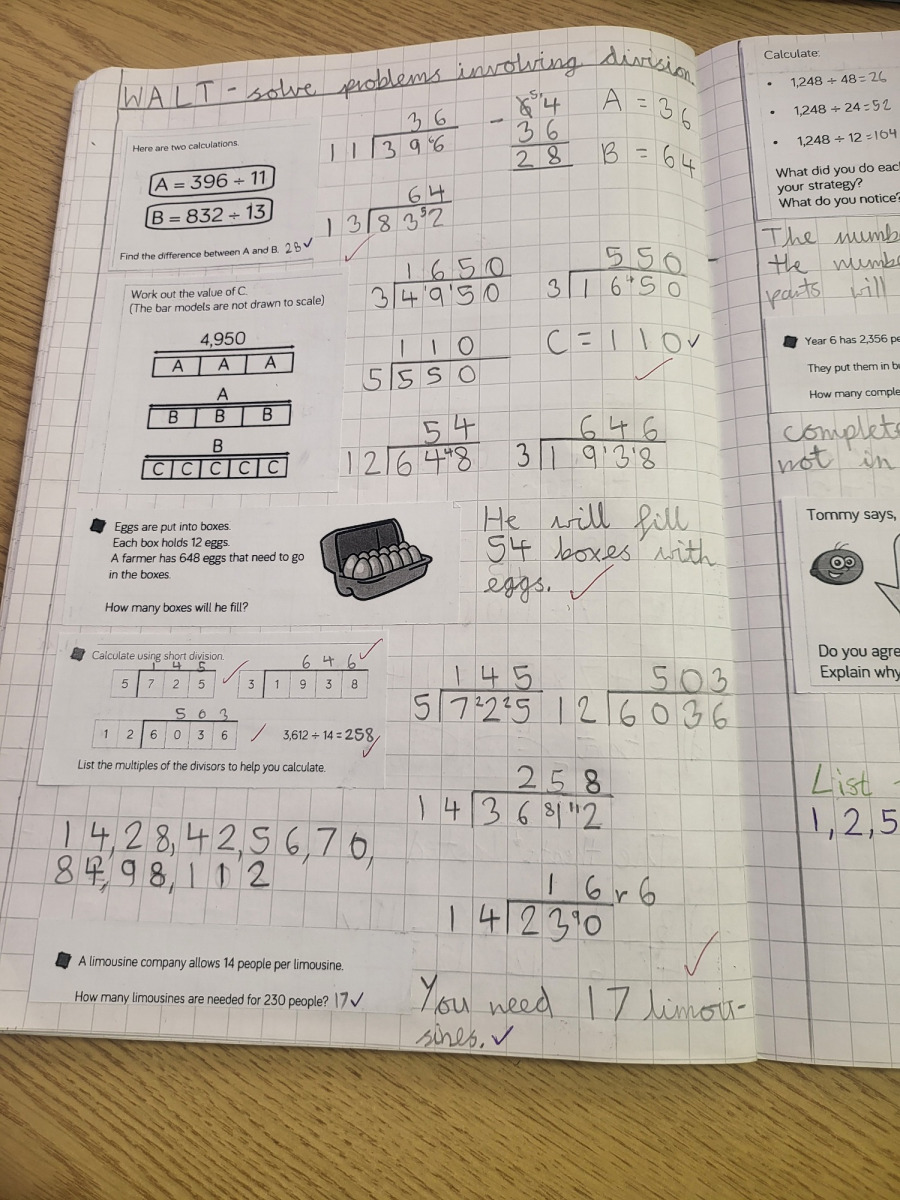 WALT - solve problems involving division.
Here are two calculations.
A = 396 ÷ 11
B = 832 ÷ 13
Find the difference between A and B. 28✓
36
11 396
64
13 83⁵2
- 6⁵¹4
36
28
A = 36
B = 64
Work out the value of C.
(The bar models are not drawn to scale)
4,950
A A A
A
B B B
B
C C C C C
1650
3 4¹9¹50
550
3 16¹50
110
5 550
C = 110✓
54
12 64⁴8
646
3 19¹3¹8
Eggs are put into boxes.
Each box holds 12 eggs.
A farmer has 648 eggs that need to go
in the boxes.
How many boxes will he fill?
He will fill
54 boxes with
eggs.
Calculate using short division.
1 4 5
5 7 2 5
6 4 6
3 1 9 3 8
5 0 3
1 2 6 0 3 6
3,612 ÷ 14 = 258
List the multiples of the divisors to help you calculate.
145
5 7²2²5
503
12 6036
258
14 36⁸1¹¹2
14, 28, 42, 56, 70,
84, 98, 112
16 r 6
14 23⁹0
A limousine company allows 14 people per limousine.
How many limousines are needed for 230 people? 17✓
You need 17 limou-
sines. ✓
Calculate:
• 1,248 ÷ 48 = 26
• 1,248 ÷ 24 = 52
• 1,248 ÷ 12 = 104
What did you do
your strategy?
What do you notice?
The
the
parts will
Year 6 has 2,356
They put them in
How many
not in
Tommy says,
Do you
Explain why
List
1, 2, 5